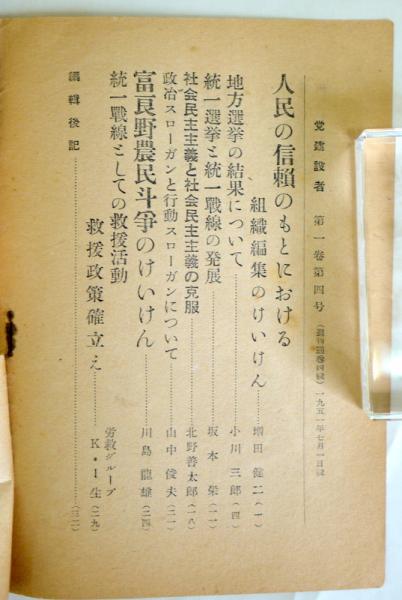 党建設者 第一卷第四号 (週刊通巻四號) 一九五一年七月一日號
人民の信賴のもとにおける
組織編集のけいけん 増田健二(一)
地方選挙の結果について 小川三郎(四)
統一選挙と統一戰線の発展 坂本栄(一一)
社会民主主義と社会民主主義の克服 北野善太郎(一八)
政治スローガンと行動スローガンについて 山中俊夫(二一)
富良野農民斗爭のけいけん 川島龍雄(二四)
統一戰線としての救援活動 労救グループ
救援政策確立え K・I生(二九)
編輯後記 (三二)